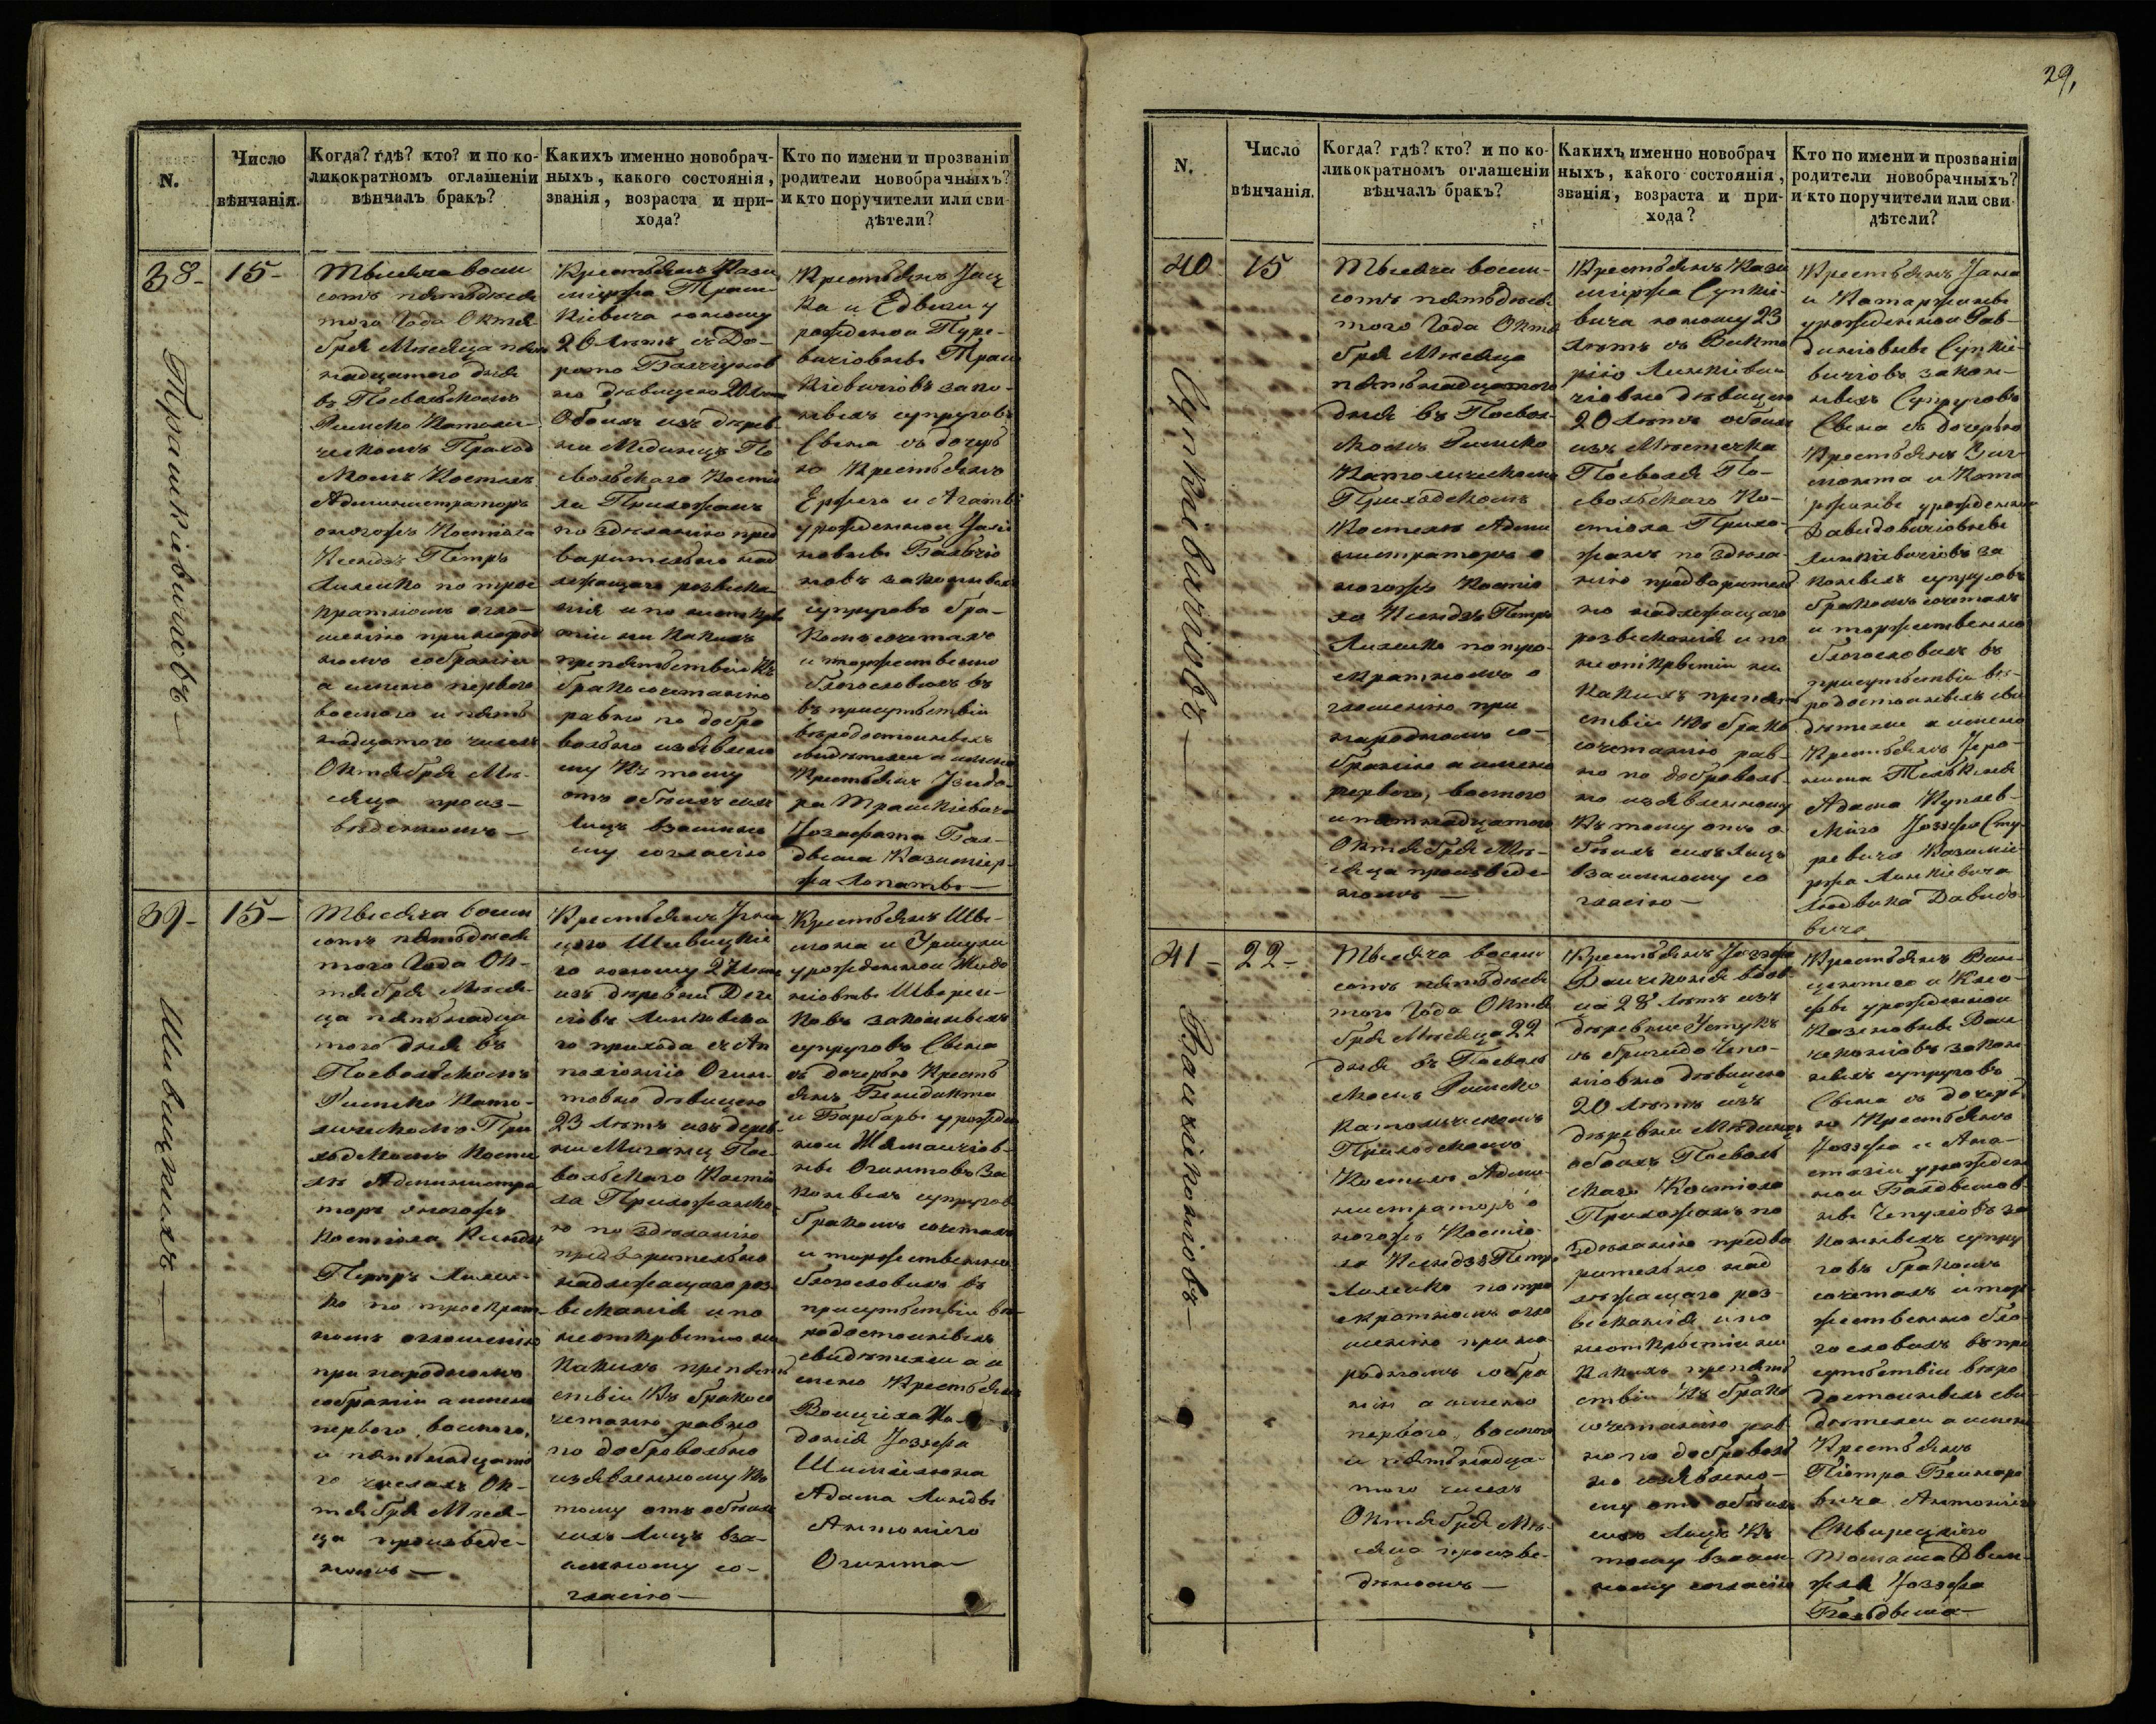 29,
N.
Число
вѣнчанія.
Когда? гдѣ? кто? и по ко-
ликократномъ оглашеніи
вѣнчалъ бракъ?
Какихъ именно новобрач-
ныхъ, какого состоянія,
званія, возраста и при-
хода?
Кто по имени и прозванію
родители новобрачныхъ?
и кто поручители или сви-
дѣтели?
38-
15-
Трашкевичовъ
Тысяча восем
сотъ пятьдеся
того Года Октя
бря Мѣсяца пят
надцатого дня
въ Посвольскомъ
Римско Католи-
ческомъ Приход
скомъ Костелѣ
Администраторъ
оногожъ Костіола
Ксендзъ Петръ
по трое
кратномъ огло-
шенію при народ
номъ собраніи
а именно первого
восмого и пять
надцатого числахъ
Октября Мѣ-
сяца произ-
веденномъ—
Крестьянъ Кази
міржа Траш-
кіевича юношу
20 лѣтъ съ До-
рото
но дѣвицею 20 лѣт
Обоихъ изъ дерев
ни По
свольского Костіо
ла Прихожанъ
по здѣланію пред
варительно над
лежащаго розыска
нія и по неоткры
тіи ни какихъ
препятствіи къ
бракосочетанію
равно по добро
вольно изъявлено
му къ тому
отъ обоихъ сихъ
лицъ взаимно
му согласію
Крестьянъ Яц
ка и Едвиги у
рожденной
Траш
кіевичовъ зако-
нныхъ супруговъ
Сына съ дочерь
ю Крестьянъ
Ержего и Агаты
урожденной
новъ законныхъ
супруговъ бра-
комъ сочеталъ
и торжественно
благословилъ въ
въ присутствіи
вѣродостойныхъ
свидѣтелей а имено
Крестьянъ Изидо
ра Трашкіевича
Іозафата Бал-
двина Казимір-
жа Лопаты—
39-
15-
Шивицкихъ—
Тысяча восем
сотъ пятьдеся
того Года Ок-
тября Мѣся-
ца пятьнадца
того дня въ
Посвольскомъ
Римско Като-
лическомъ При
ходскомъ Кости
лѣ Администра
торъ оногожъ
Костіола Ксендз
Петръ
ко по троекрат-
номъ оглошенію
при народномъ
собраніи а имено
первого, восмого,
и пятьнадцато
го числахъ Ок-
тября Мѣся-
ца произведе-
номъ—
Крестьянъ Игна
цого Шивицкіе
го юношу 27 лѣт
изъ деревни
Линковска
го прихода съ Ап
полонію Огин-
товно дѣвицею
23 лѣтъ изъ дерев
ни Пос-
вольского Костіо
ла Прихожанко
ю по здѣланію
предворительно
надлежащаго роз
ысканія и по
неоткрытію ни
какихъ препят
ствіи къ бракосо
четанію равно
по добровольно
изъявленному къ
тому отъ обоихъ
сихъ лицъ вза-
имному со-
гласію—
Крестьянъ Шы-
мона и Уршули
урожденной
законныхъ
супруговъ Сына
съ дочерью Кресть
янъ Бенидикта
и Барбары урожден
ной
ны Огинтовъ За
конныхъ супругов
бракомъ сочеталъ
и торжественно
благословилъ въ
присутствіи вѣ-
родостойныхъ
свидѣтелей а и
мено Крестьянъ
Іозефа
Адама
Антоніего
Огинта—
N.
Число
вѣнчанія.
Когда? гдѣ? кто? и по ко-
ликократномъ оглашеніи
вѣнчалъ бракъ?
Какихъ именно новобрач
ныхъ, какого состоянія,
званія, возраста и при-
хода?
Кто по имени и прозванію
родители новобрачныхъ?
и кто поручители или сви-
дѣтели?
40
15
Супкевичіовъ—
Тысяча восем-
сотъ пятьдеся
того Года Октя
бря Мѣсяца
пятьнадцатого
дня въ Посволь
скомъ Римско
Католическомъ
Приходскомъ
Костелѣ Адми
нистраторъ о
ногожъ Костіо
ла Ксендзъ Петръ
по тро-
екратномъ о
глошенію при
народномъ со-
бранію а имено
первого, восмого
и пятнадцатого
Октября Мѣ-
сяца произведе-
номъ—
Крестьянъ Кази
міржа Супкіе-
вича юношу 23
лѣтъ съ Викто
рію Линкіеви
чіовно дѣвицею
20 лѣтъ обоихъ
изъ Мѣстечка
Посволя По-
свольского Ко-
стіола Прихо-
жанъ по здѣла-
нію предворитель
но надлежащаго
розысканія и по
неоткрытіи ни
какихъ препят
ствіи къ брако
сочетанію рав-
но по доброволь
но изъявленному
къ тому отъ о
боихъ сихъ лицъ
взаимному со
гласію—
Крестьянъ Яна
и Катаржины
урожденной
Супкіе-
вичіовъ закон-
ныхъ Супруговъ
Сына съ дочерью
Крестьянъ Зиг
монта и Ката
ржины урожденной
Давидовичіовны
Линкіевичіовъ за
конныхъ супруговъ
бракомъ сочеталъ
и торжественно
благословилъ въ
присутствіи вѣ-
родостойныхъ сви
дѣтелей а имено
Крестьянъ Іеро-
нима
Адама
Іозефа Сту-
ревича Казимі-
ржа Линкіевича
Людвика Давидо-
вича
41-
22-
Тысяча восем
сотъ пятьдеся
того Года Октя
бря Мѣсяца 22
дня въ Посволь
скомъ Римско
Католическомъ
Приходскомъ
Костелѣ Адми-
нистраторъ о
ногожъ Костіо
ла Ксендзъ Петръ
по трое
кратномъ огло
шенію при на-
родномъ собра
ніи а имено
первого, восмого
и пятьнадца-
того числахъ
Октября Мѣ-
сяца произве-
деномъ—
Крестьянъ Іозефа
вдов
ца 28 лѣтъ изъ
деревни
съ Бригидо Чепу-
ліовно дѣвицею
20 лѣтъ изъ
деревни
обоихъ Посволь
ского Костіола
Прихожанъ по
здѣланію предва
рительно над
лежащаго роз-
ысканія и по
неоткрытіи ни
какихъ препят
ствіи къ брако
сочетанію рав
но по доброволь
но изъявлено-
му отъ обоихъ
сихъ лицъ къ
тому взаим-
ному согласію
Крестьянъ Вин-
центего и
урожденной
закон
ныхъ супруговъ
Сына съ дочерь
ю Крестьянъ
Іозефа и Ана-
стазіи урожден
ной Балдвинов
ны Чепуліовъ за
конныхъ супру
говъ бракомъ
сочеталъ и тор-
жественно бла-
гословилъ въ при
сутствіи вѣро
достойныхъ сви
дѣтелей а имено
Крестьянъ
Піотра
вича Антоніего
Томаша
Іозефа
Бальдвина—